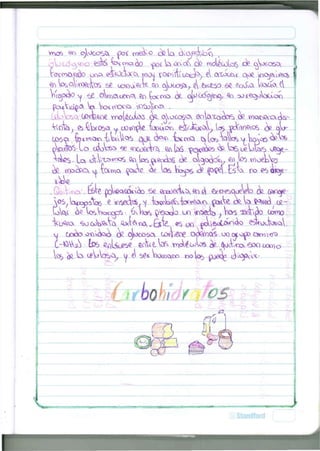 mos en glucosa por medio de la digestión.
Glucógeno: está formado por la unión de moléculas de glucosa
formando una estructura muy ramificada, el azúcar que ingerimos
en los alimentos se convierte en glucosa, el exceso se envía hacia el
hígado y se almacena en forma de glucógeno, en su regulación
participa la hormona insulina.
Celulosa: contiene moléculas de glucosa enlazadas de manera dis-
tinta, es fibrosa y cumple función estructural, los polímeros de glu-
cosa forman fibrillas que dan forma a los tallos y hojas de las
plantas. La celulosa se encuentra en las paredes de las células vege-
tales. La utilizamos en las prendas de algodón, en los muebles
de madera y forma parte de las hojas de papel. Esta no es dige-
rible
Quitina: Este polisacárido se encuentra en el exoesqueleto de cangre-
jos, langostas e insectos, y también forman parte de la pared ce-
lular de los hongos. Si has pisado un insecto, has sentido como
truena su cubierta externa. Este, es un polisacárido estructural
y cada unidad de glucosa contiene además un grupo amino
(-NH2) Los enlaces entre las moléculas de quitina son como
los de la celulosa, y el ser humano no los puede digerir.
Carbohidratos
Stanford